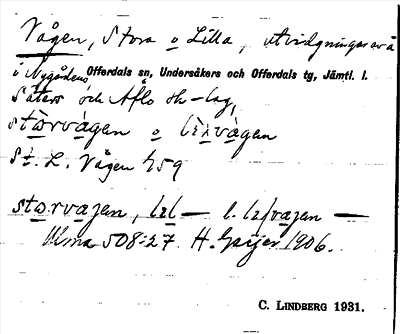 Vågen, Stora o Lilla, utvidgningar av å
i Nygårdens Offerdals sn, Undersåkers och Offerdals tg, Jämtl. l.
Säters och Aflö sk-lag,
stòrvágen o lìlvágen
St. L. Vågen 459
storvagen, lzl — l. lzlvagen —
Ulma 508:27 H. Geijer 1906.
C. LINDBERG 1931.